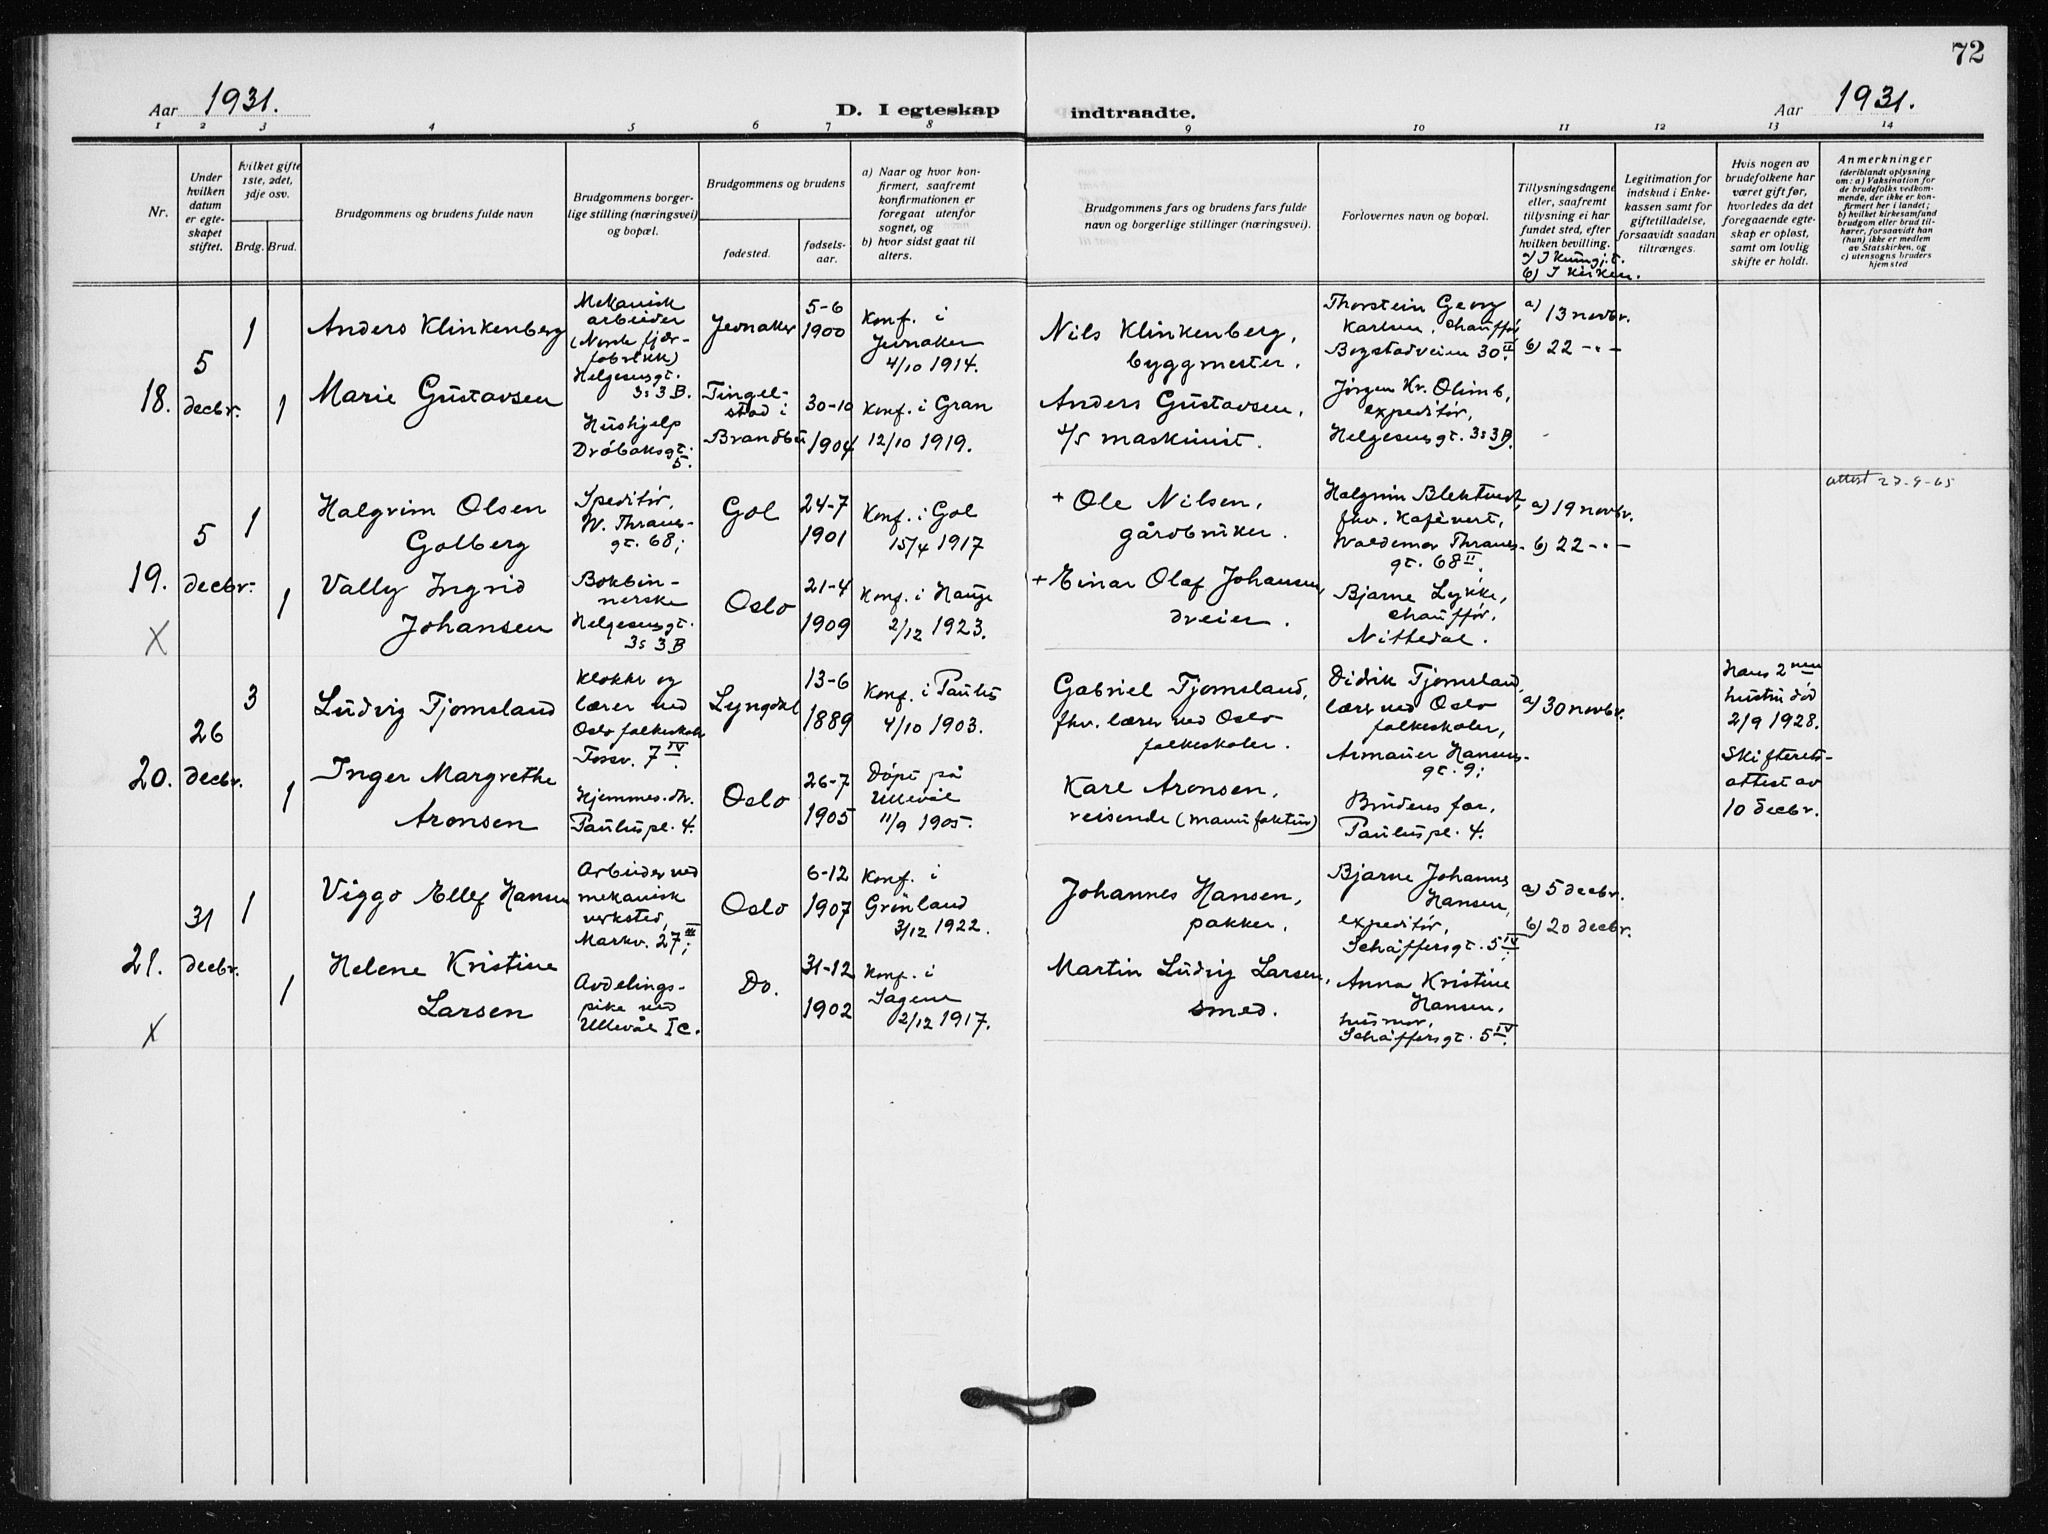 72
Aar 1931.
D. I egteskap indtraadte.
Aar 1931.
1 2 3 4 5 6 7 8 9 10 11 12 13 14
Nr.
Under
hvilken
datum
er egte-
skapet
stiftet.
hvilket gifte
1ste, 2det,
3dje osv.
Brdg. Brud.
Brudgommens og brudens fulde navn
Brudgommens borger-
lige stilling (næringsvei)
og bopæl.
Brudgommens og brudens
fødested.
fødsels-
aar.
a) Naar og hvor kon-
firmert, saafremt
konfirmationen er
foregaat utenfor
sognet, og
b) hvor sidst gaat til
alters.
Brudgommens fars og brudens fars fulde
navn og borgerlige stillinger (næringsvei).
Forlovernes navn og bopæl.
Tillysningsdagene
eller, saafremt
tillysning ei har
fundet sted, efter
hvilken bevilling.
a) I kungjt.
b) I kirken.
Legitimation for
indskud i Enke-
kassen samt for
giftetilladelse,
forsaavidt saadan
tiltrænges.
Hvis nogen av
brudefolkene har
været gift før,
hvorledes da det
foregaaende egte-
skap er opløst,
samt om lovlig
skifte er holdt.
Anmerkninger
(deriblandt oplysning
om: a) Vaksination for
de brudefolks vedkom-
mende, der ikke er kon-
firmert her i landet;
b) hvilket kirkesamfund
brudgom eller brud til-
hører, forsaavidt han
(hun) ikke er medlem
av Statskirken, og
c) utensogns bruders
hjemsted
18.
5
decbr.
1
Anders Klinkenberg
Mekanisk
arbeider
(Norsk fjær-
fabrikk)
Helgesensgt.
3s 3 B.
Jevnaker
5-6
1900
Konf. i
Jevnaker
4/10 1914.
Nils Klinkenberg,
byggmester.
Thorstein Georg
Karlsen, chauffør,
Bogstadveien 30 II.
a) 13 novbr.
b) 22 -"-
1
Marie Gustavsen
Hushjelp
Drøbaksgt.
5.
Tingel-
stad i
Brandbu
30-10
1904
Konf. i Gran
12/10 1919.
Anders Gustavsen,
d/s maskinist.
Jørgen Kr. Olimb,
expeditør,
Helgesensgt. 3s 3 B.
19.
5
decbr.
X
1
Halgrim Olsen
Golberg
Speditør,
W. Thranes-
gt. 68;
Gol
24-7
1901
Konf. i Gol
15/4 1917
+ Ole Nilsen,
gårdbruker.
Halgrim Blektvedt,
fhv. kafévert,
Waldemar Thranes-
gt. 68 II.
a) 19 novbr.
b) 22 -"-
attest 27-9-65
1
Vally Ingrid
Johansen
Bokbin-
nerske
Helgesensgt.
3s 3 B
Oslo
21-4
1909
Konf. i Hauge
2/12 1923.
+ Einar Olaf Johansen,
dreier.
Bjarne Lykke,
chauffør,
Nittedal.
20.
26
decbr.
3
Ludvig Tjomsland
Klokker og
lærer ved
Oslo folkeskoler
Torsv. 7 IV.
Lyngdal
13-6
1889
Konf. i Paulus
4/10 1903.
Gabriel Tjomsland,
fhv. lærer ved Oslo
folkeskoler.
Didrik Tjomsland,
lærer ved Oslo
folkeskoler,
Armauer Hansens-
gt. 9;
a) 30 novbr.
Hans 2nen
hustru død
2/9 1928.
Skifteretts-
attest av
10 decbr.
1
Inger Margrethe
Aronsen
Hjemmev. dtr.
Paulus pl. 4.
Oslo
26-7
1905
Døpt på
Ullevål
11/9 1905.
Karl Aronsen,
reisende (manufaktur)
Brudens far,
Paulus pl. 4.
21.
31
decbr.
X
1
Viggo Ellef Hansen
Arbeider ved
mekanisk
verksted,
Markv. 27 III;
Oslo
6-12
1907
Konf. i
Grønland
3/12 1922.
Johannes Hansen,
pakker.
Bjarne Johannes
Hansen,
expeditør,
Schäffersgt. 5 IV.
a) 5 decbr.
b) 20 decbr.
1
Helene Kristine
Larsen
Avdelings-
pike ved
Ullevål Ic.
Do.
31-12
1902
Konf. i
Sagene
2/12 1917.
Martin Ludvig Larsen,
smed.
Anna Kristine
Hansen,
husmor,
Schäffersgt. 5 IV.